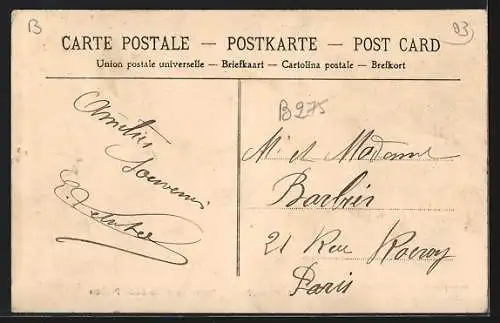 B
93
CARTE POSTALE — POSTKARTE — POST CARD
Union postale universelle — Briefkaart — Cartolina postale — Brefkort
B275
Amitiés
Souvenir
M. et Madame
Barbier
21 Rue Rocroy
Paris